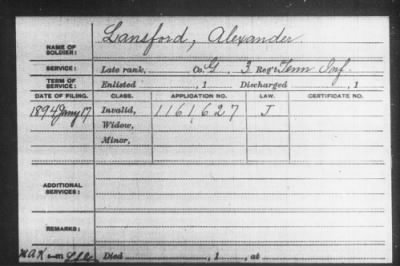 Lansford, Alexander
NAME OF SOLDIER:
SERVICE: Late rank, Co. G, 3 Reg't Tenn Inf.
TERM OF SERVICE: Enlisted , 1 Discharged , 1
DATE OF FILING. CLASS. APPLICATION NO. LAW. CERTIFICATE NO.
1894 Jany 17 Invalid, 1161,627 J
Widow,
Minor,
ADDITIONAL SERVICES:
REMARKS:
Died , 1 , at